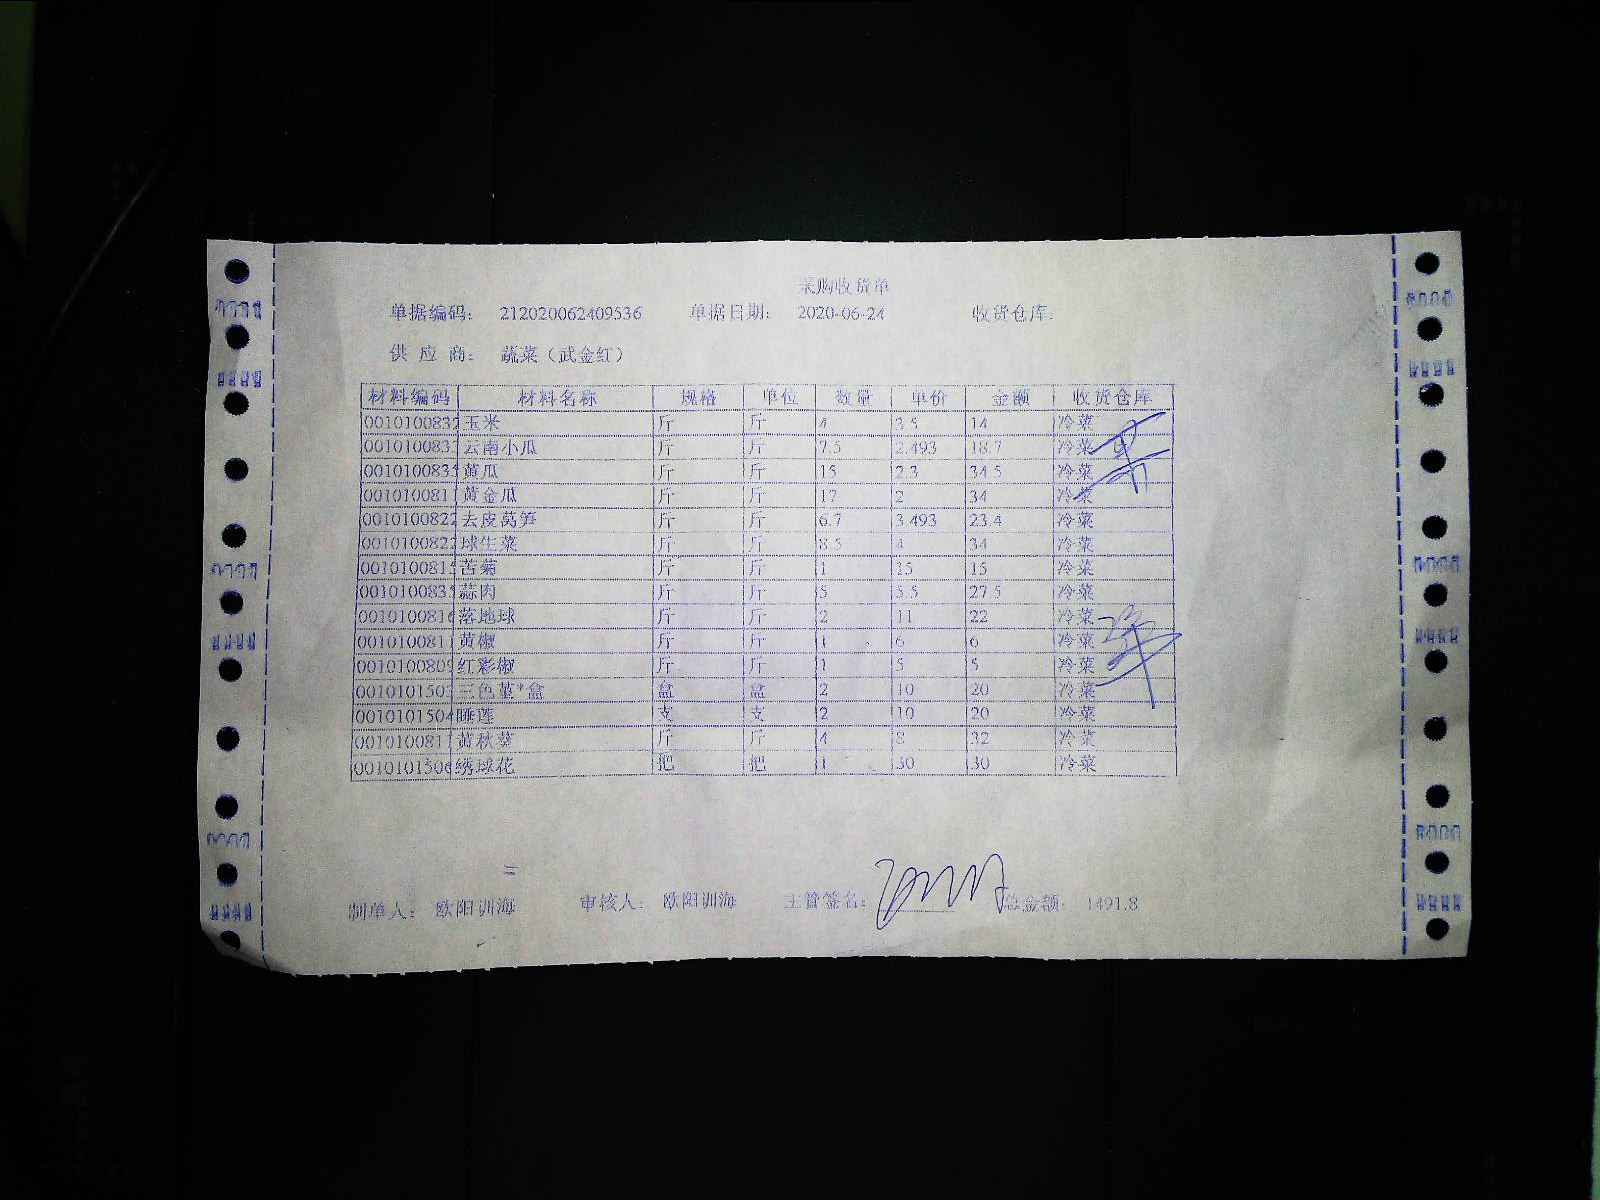 采购收货单
单据编码： 212020062409536 单据日期： 2020-06-24 收货仓库：
供 应 商： 蔬菜（武金红）
材料编码 材料名称 规格 单位 数量 单价 金额 收货仓库
0010100832 玉米 斤 斤 4 3.5 14 冷菜
001010083 云南小瓜 斤 斤 7.5 2.493 18.7 冷菜
001010083 黄瓜 斤 斤 15 2.3 34.5 冷菜
001010081 黄金瓜 斤 斤 17 2 34 冷菜
0010100822 去皮莴笋 斤 斤 6.7 3.493 23.4 冷菜
0010100822 球生菜 斤 斤 8.5 4 34 冷菜
001010081 苦菊 斤 斤 1 15 15 冷菜
001010083 蒜肉 斤 斤 5 5.5 27.5 冷菜
001010081 落地球 斤 斤 2 11 22 冷菜
001010081 黄椒 斤 斤 1 6 6 冷菜
001010080 红彩椒 斤 斤 1 5 5 冷菜
001010150 三色堇*盒 盒 盒 2 10 20 冷菜
0010101504 睡莲 支 支 2 10 20 冷菜
001010081 黄秋葵 斤 斤 4 8 32 冷菜
001010150 绣球花 把 把 1 30 30 冷菜
制单人： 欧阳训海 审核人： 欧阳训海 主管签名： 总金额： 1491.8